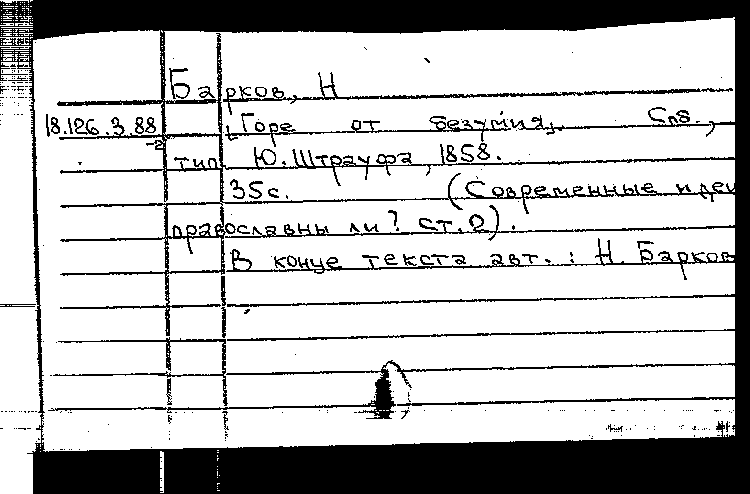 Барков, Н
18.126.3.88 „Горе от безумия„. Спб.,
-2 тип. Ю. Штрауфа, 1858.
35с. (Современные идеи
православны ли? ст. 2).
В конце текста авт. : Н. Барков